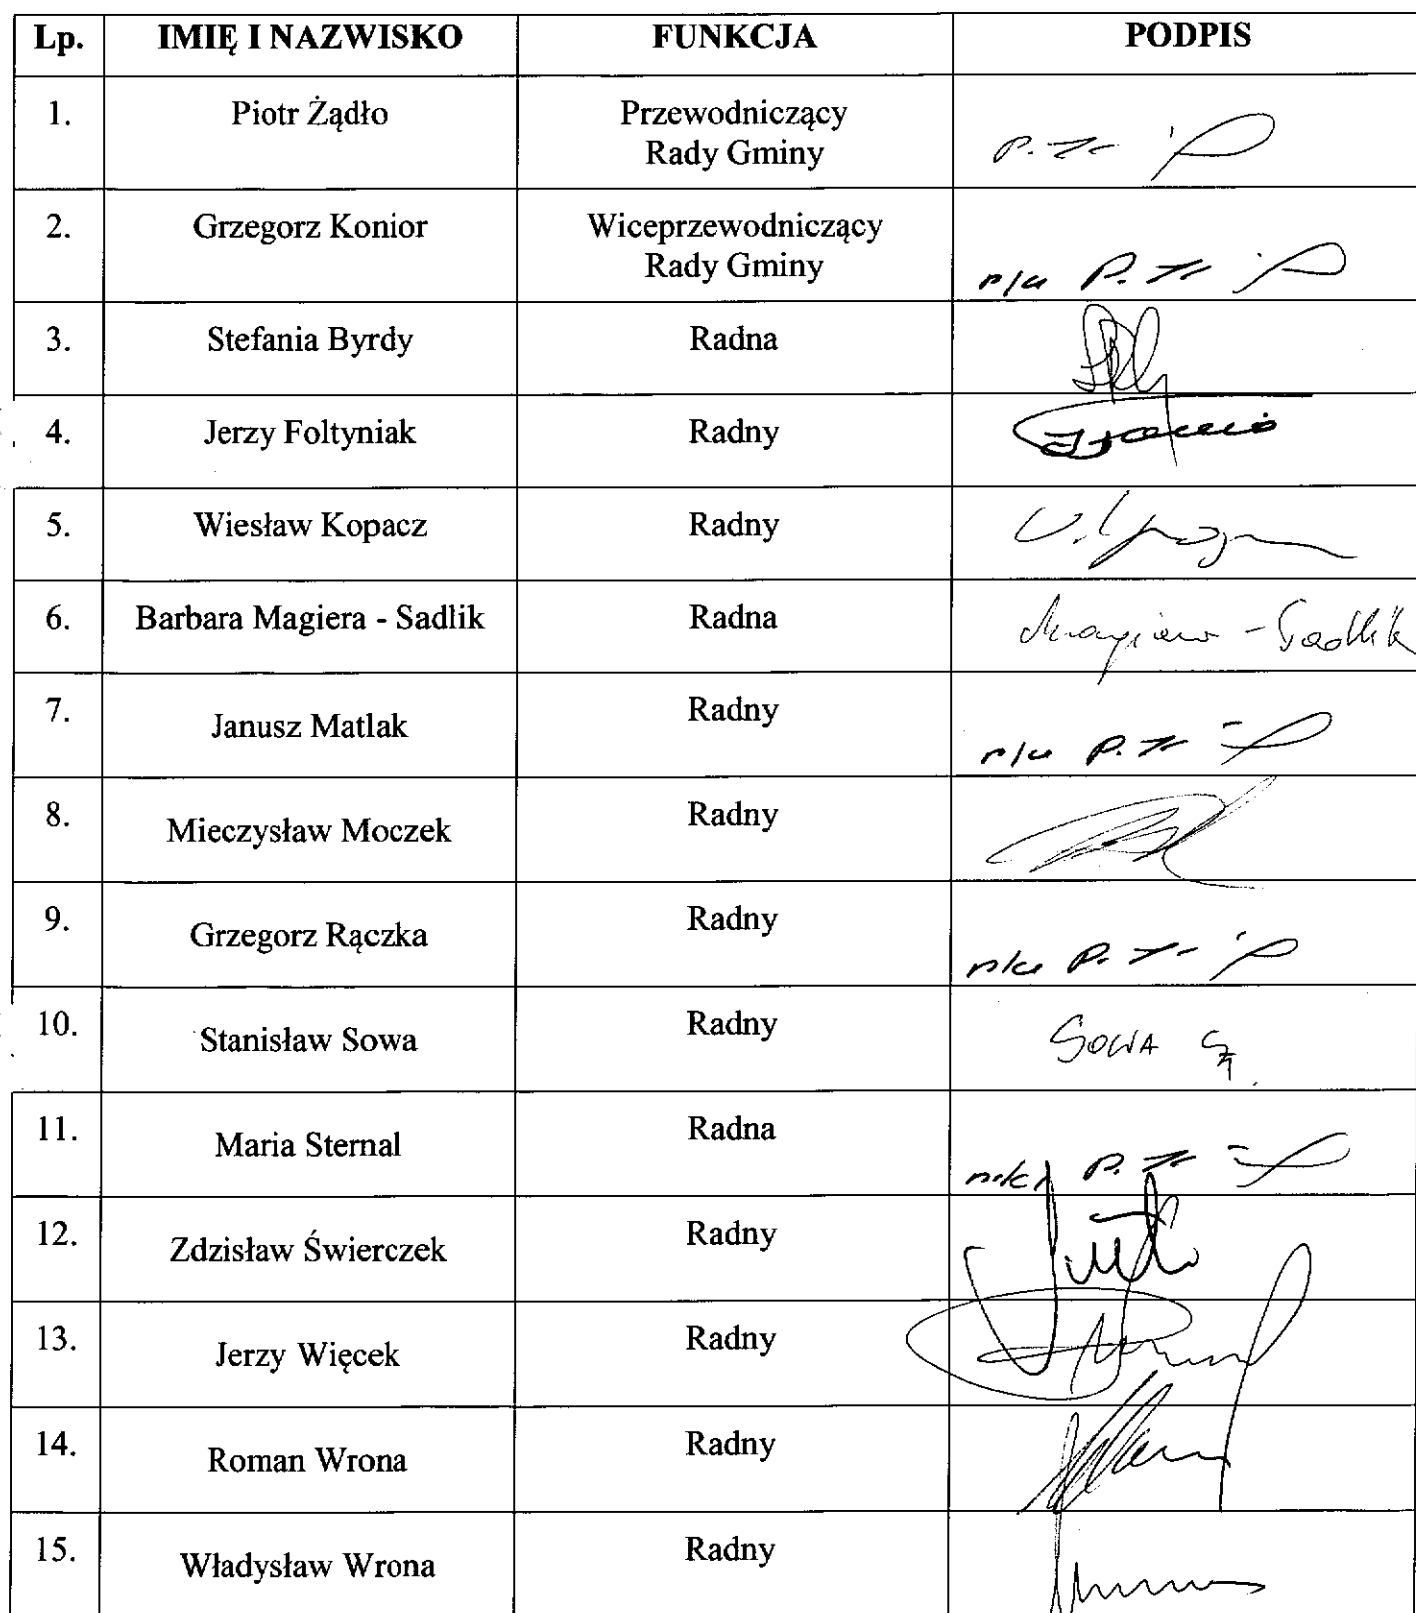 Lp. IMIĘ I NAZWISKO FUNKCJA PODPIS
1. Piotr Żądło Przewodniczący
Rady Gminy
2. Grzegorz Konior Wiceprzewodniczący
Rady Gminy
3. Stefania Byrdy Radna
4. Jerzy Foltyniak Radny
5. Wiesław Kopacz Radny
6. Barbara Magiera - Sadlik Radna Magiera - Sadlik
7. Janusz Matlak Radny
8. Mieczysław Moczek Radny
9. Grzegorz Rączka Radny
10. Stanisław Sowa Radny SOWA
11. Maria Sternal Radna
12. Zdzisław Świerczek Radny
13. Jerzy Więcek Radny
14. Roman Wrona Radny
15. Władysław Wrona Radny